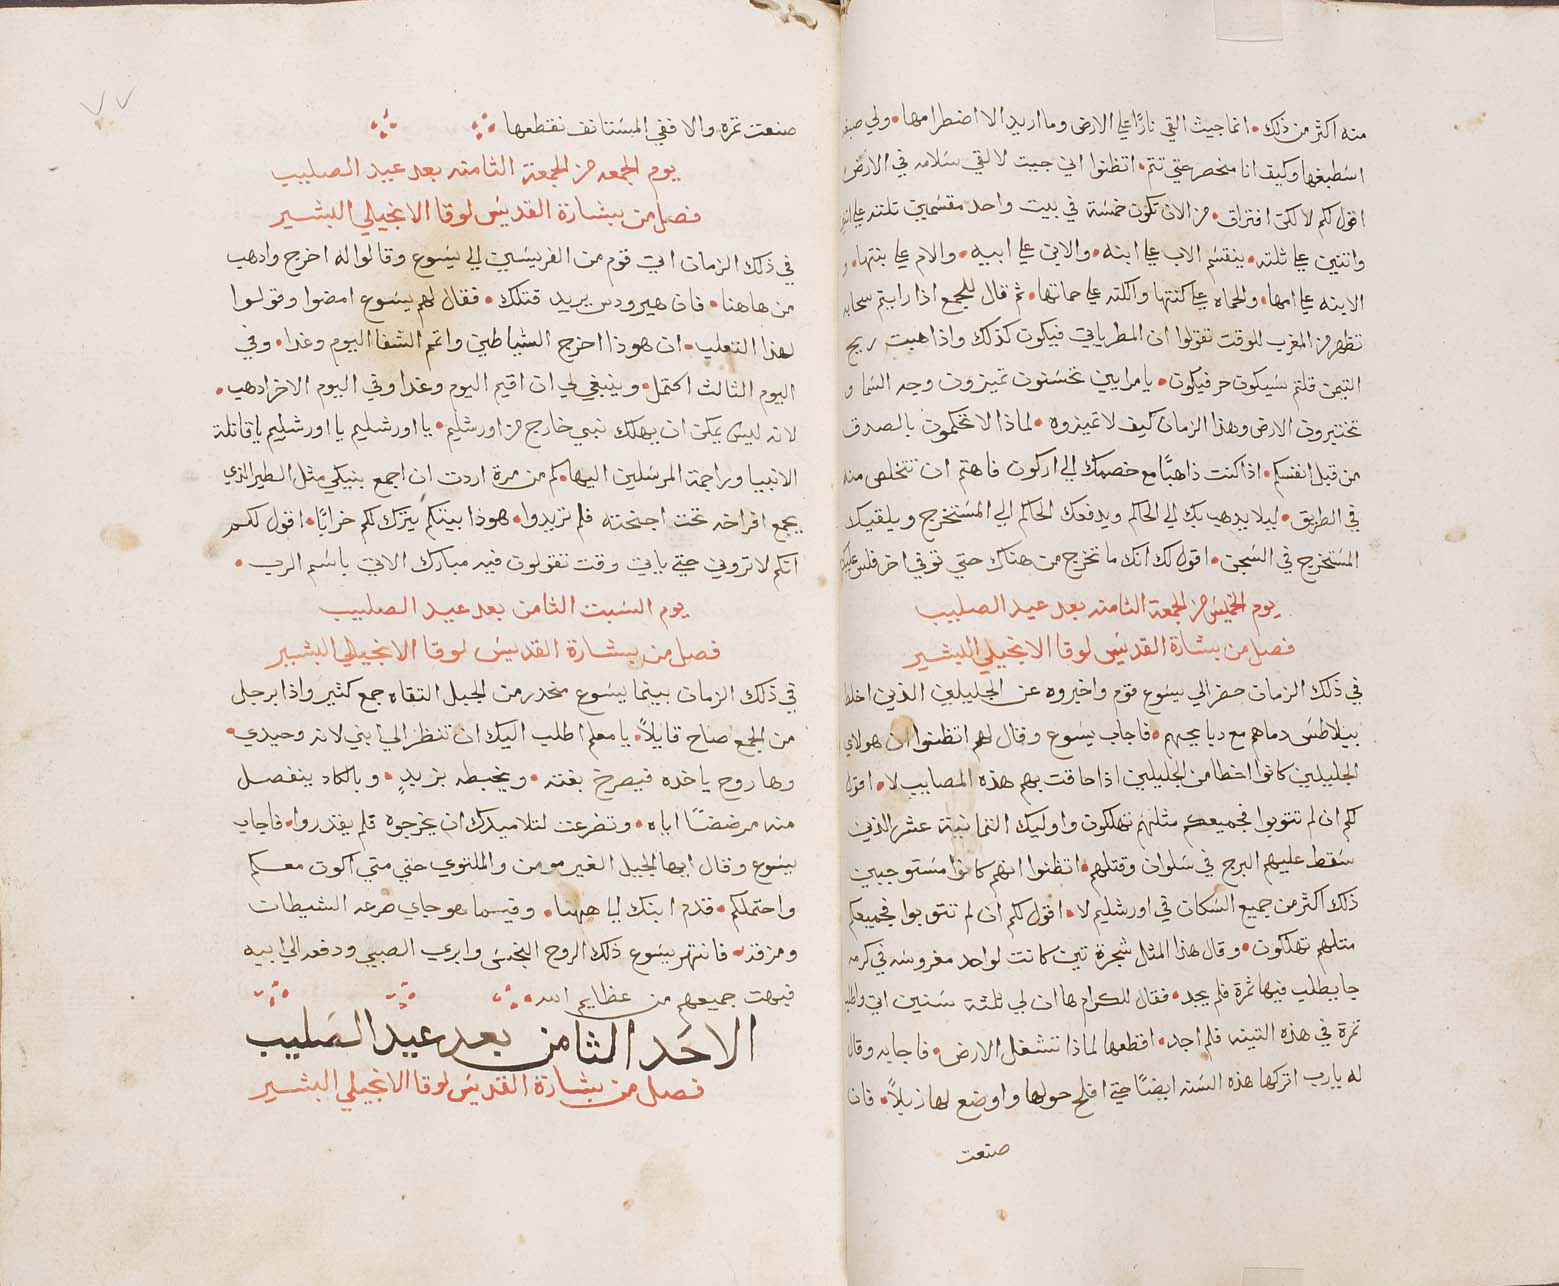 منه اكثر من ذلك انما جيت القي نارًا علي الارض وما اريد الا اضطرامها ولي صبغه
اصطبغها وكيف انا منحصر حتي تتم اتظنوا اني جيت لالقي سلامه في الارض
اقول لكم لا لكن افتراق من الان تكون خمسة في بيت واحد مقسمين تلته علي اتنين
واتنين علي ثلته ينقسم الاب علي ابنه والابن علي ابيه والام علي بنتها و
الابنه علي امها والحماه علي كنتها والكنه علي حماتها ثم قال للجمع اذا رايتم سحابه
تظهر من المغرب للوقت تقولوا ان المطر ياتي فيكون كذلك واذا هبت ريح
التيمن قلتم سيكون حر فيكون يا مرايين تحسنون تميزون وجه السما و
تختبرون الارض وهذا الزمان كيف لا تميزوه لماذا لا تحكمون بالصدق
من قبل انفسكم اذا كنت ذاهبًا مع خصمك الي اركون فاهتم ان تتخلص منه
في الطريق ليلا يدهب بك الي الحاكم ويدفعك الحاكم الي المستخرج ويلقيك
المستخرج في السجن اقول لك انك ما تخرج من هناك حتي توفي اخر فلس عليك
يوم الخميس من الجمعة الثامنه بعد عيد الصليب
فصل من بشارة القديس لوقا الانجيلي البشير
في ذلك الزمان حضر الي يسوع قوم واخبروه عن الجليليين الذين اخلط
بيلاطس دماهم مع دبايحهم فاجاب يسوع وقال لهم اتظنوا ان هولاي
الجليليين كانوا اخطا من الجليليين اذا حاقت بهم هذه المصايب لا اقول
لكم ان لم تتوبوا فجميعكم مثلهم تهلكون واوليك الثمانية عشر الذين
سقط عليهم البرج في سلوان وقتلهم اتظنوا انهم كانوا مستوجبين
ذلك اكثر من جميع السكان في اورشليم لا اقول لكم ان لم تتوبوا فجميعكم
متلهم تهلكون وقال هذا المثل شجرة تين كانت لواحد مغروسه في كرمه
جا يطلب فيها ثمرة فلم يجد فقال للكرام ها ان لي ثلثة سنين اتي واطلب
ثمرة في هذه التينه فلم اجد اقطعها لماذا تشغل الارض فاجابه وقال
له يارب اتركها هذه السنه ايضًا حتي افلح حولها واوضع لها زبلاً فان
صنعت
صنعت ثمره والا ففي المستانف نقطعها
يوم الجمعه من الجمعة الثامنه بعد عيد الصليب
فصل من بشارة القديس لوقا الانجيلي البشير
في ذلك الزمان اتي قوم من الفريسيين الي يسوع وقالوا له اخرج وادهب
من هاهنا فان هيرودس يريد قتلك فقال لهم يسوع امضوا وقولوا
لهذا التعلب ان هوذا اخرج الشياطين واتمم الشفا اليوم وغدا وفي
اليوم الثالث اكتمل وينبغي لي ان اقيم اليوم وغدا وفي اليوم الاخر ادهب
لانه ليس يمكن ان يهلك نبي خارج من اورشليم يا اورشليم يا اورشليم يا قاتلة
الانبيا وراجمة المرسلين اليها كم من مرة اردت ان اجمع بنيكي مثل الطير الذي
يجمع افراخه تحت اجنحته فلم تريدوا هوذا بيتكم يترك لكم خرابًا اقول لكم
انكم لا تروني حتي ياتي وقت تقولون فيه مبارك الاتي باسم الرب
يوم السبت الثامن بعد عيد الصليب
فصل من بشارة القديس لوقا الانجيلي البشير
في ذلك الزمان بينما يسوع منحدر من الجبل التقاه جمع كثير واذا برجل
من الجمع صاح قايلاً يا معلم اطلب اليك ان تنظر الي ابني لانه وحيدي
وها روح ياخده فيصرخ بغته ويخبطه بزبدٍ وبالكاد ينفصل
منه مرضضًا اياه وتضرعت لتلاميدك ان يخرجوه فلم يقدروا فاجاب
يسوع وقال ايها الجيل الغير مومن والملتوي حتي متي اكون معكم
واحتملكم قدم ابنك الي هاهنا وفيما هو جاي صرعه الشيطان
ومزقه فانتهر يسوع ذلك الروح النجس وابري الصبي ودفعه الي ابيه
فبهت جميعهم من عظايم الله
الاحد الثامن بعد عيد الصليب
فصل من بشارة القديس لوقا الانجيلي البشير